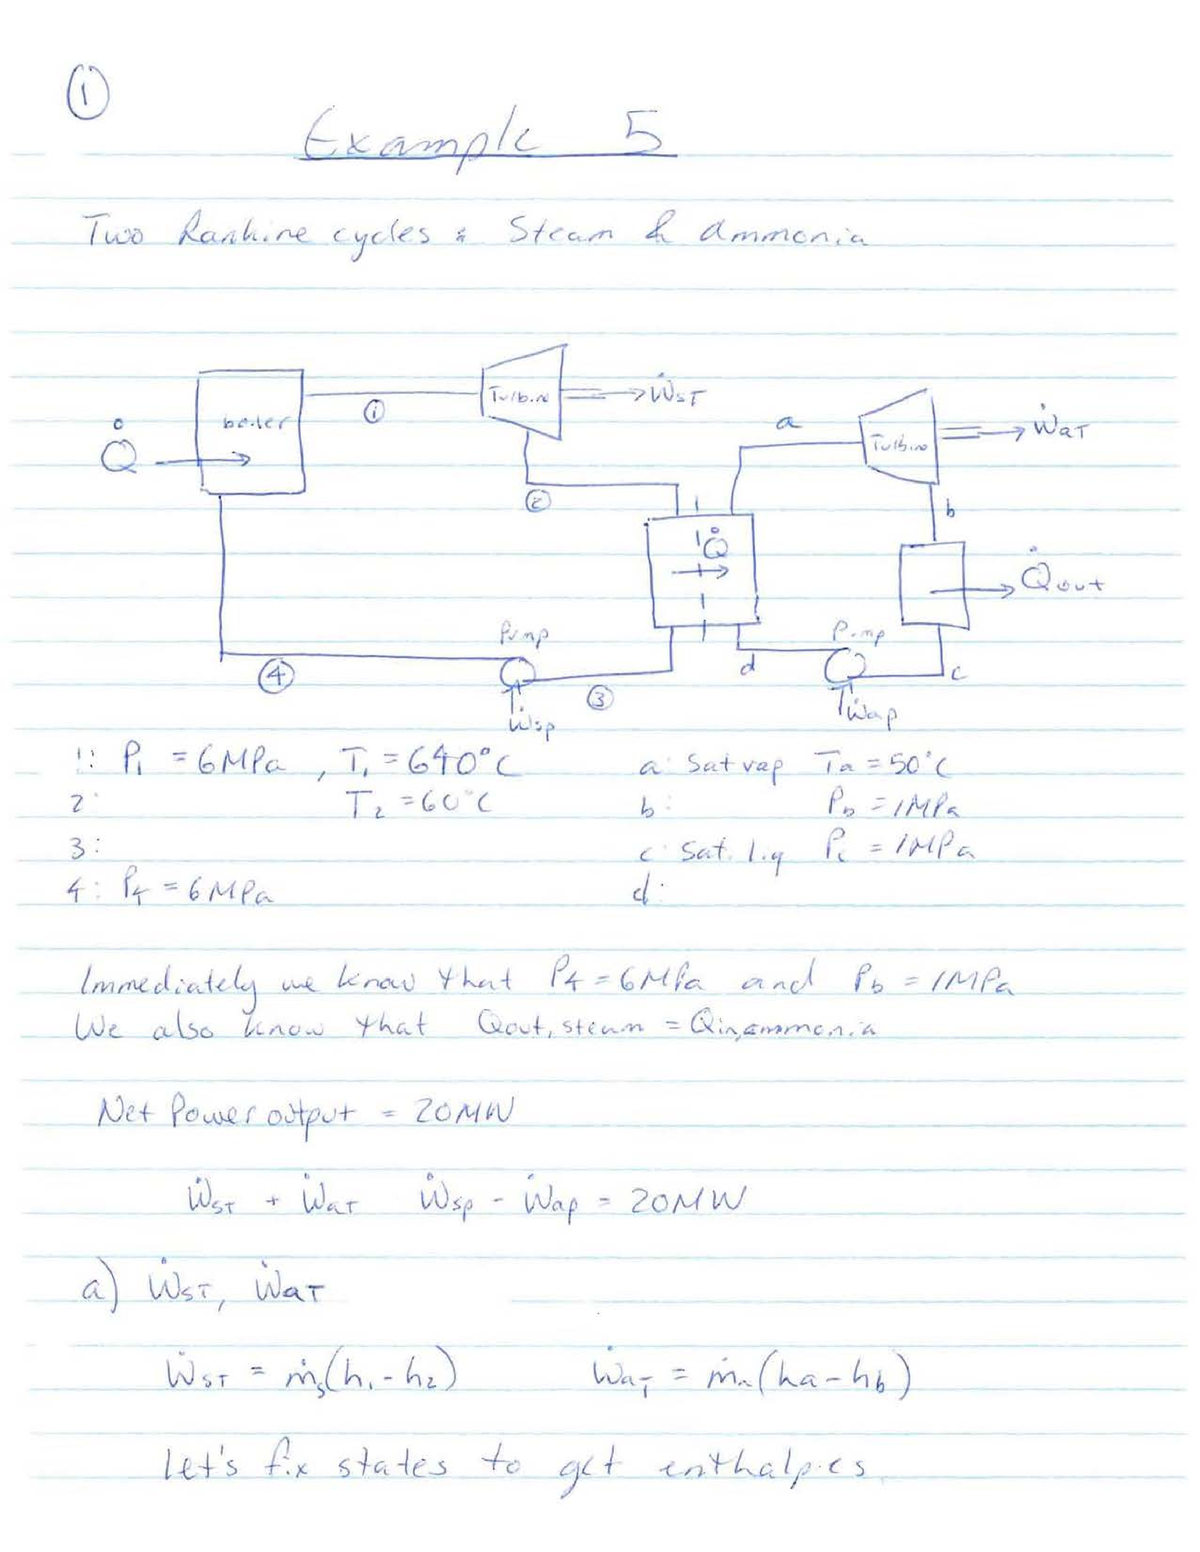 ①
Example 5
Two Rankine cycles : Steam & ammonia
boiler
Q̇
①
Turbine
ẆST
②
a
Turbine
ẆaT
b
Q̇
Q̇out
Pump
Pump
④
③
d
c
Ẇsp
Ẇap
1: P1 = 6MPa , T1 = 640°C
2: T2 = 60°C
3:
4: P4 = 6MPa
a: Sat vap Ta = 50°C
b: Pb = 1MPa
c: Sat. liq Pc = 1MPa
d:
Immediately we know that P4 = 6MPa and Pb = 1MPa
We also know that Qout, steam = Qin, ammonia
Net Power output = 20MW
ẆST + ẆaT Ẇsp - Ẇap = 20MW
a) ẆST, ẆaT
ẆST = ṁs(h1 - h2) ẆaT = ṁa(ha - hb)
Let's fix states to get enthalpies